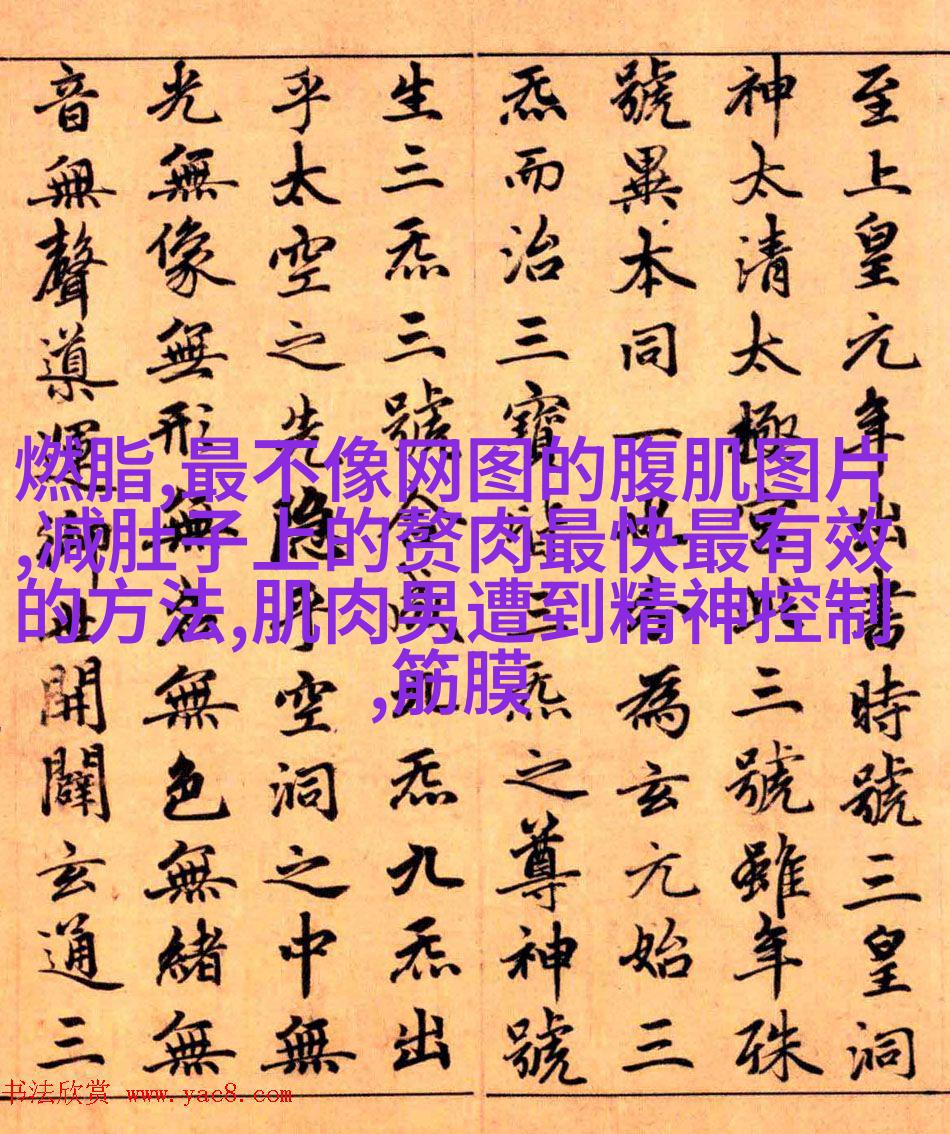 至上皇元年出書時號三皇洞
神太清太極宮此三號雖年殊
號異本同一也分為玄元始三
炁而治三寶皆三炁之尊神號
生三炁三號合成九炁九炁出
乎太空之先隱乎空洞之中無
光無像無形無名無色無緒無
音無聲導運御世開闢玄通三
燃脂,最不像网图的腹肌图片
,减肚子上的赘肉最快最有效
的方法,肌肉男遭到精神控制
,筋膜
书法欣赏 www.yac8.com